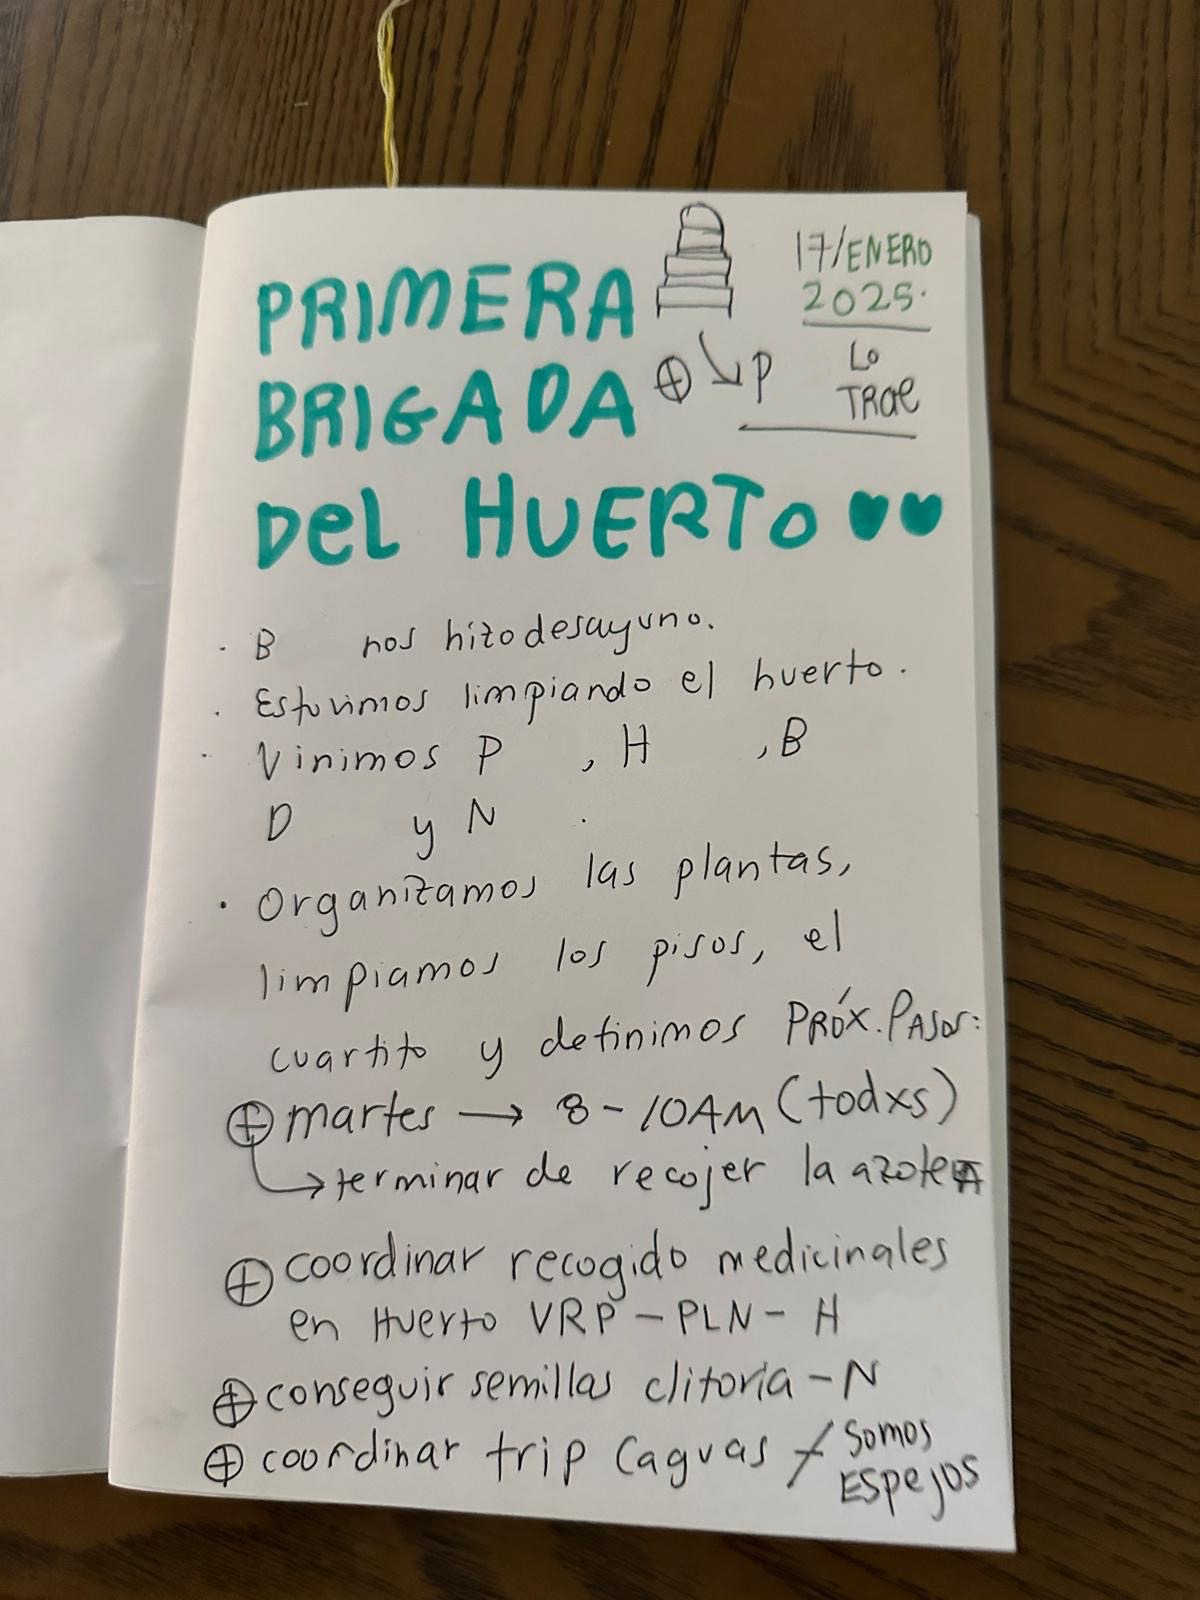 17/ENERO
2025.
PRIMERA
⊕ ↘ P Lo
TRAE
BRIGADA
DEL HUERTO ♥♥
· B nos hizo desayuno.
· Estuvimos limpiando el huerto.
· Vinimos P , H , B
D y N .
· Organizamos las plantas,
limpiamos los pisos, el
cuartito y definimos PRÓX. PASOS:
⊕ martes → 8-10AM (todxs)
↳ terminar de recojer la azotea
⊕ coordinar recogido medicinales
en Huerto VRP - PLN - H
⊕ conseguir semillas clitoria - N
⊕ coordinar trip Caguas / Somos
Espejos